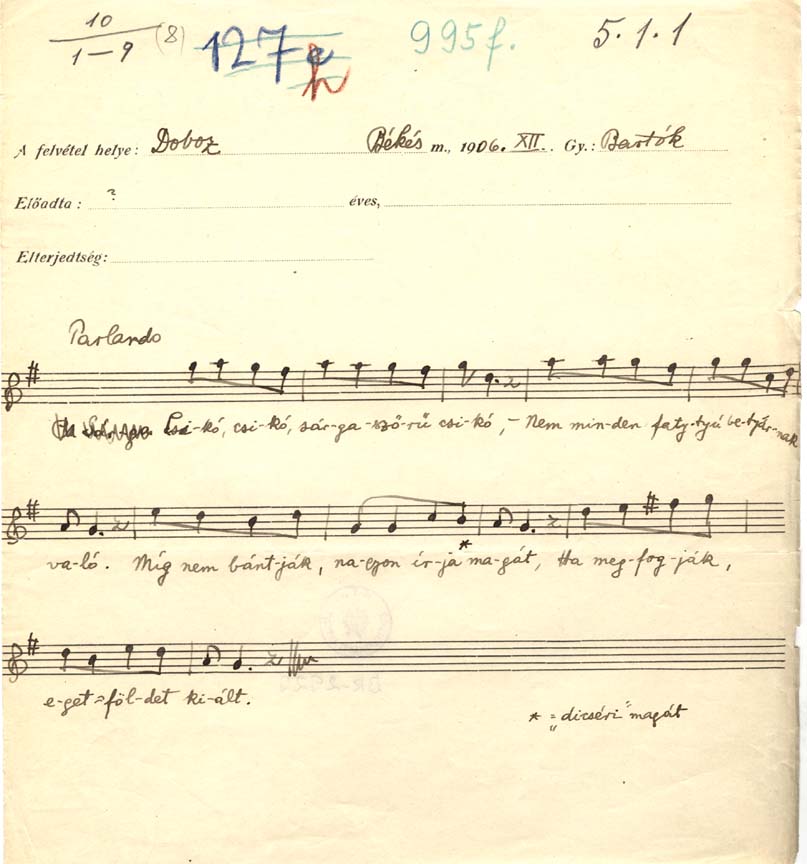 10
1–9 (8) 127 h 995 f. 5. 1. 1
A felvétel helye: Doboz Békés m., 1906. XII. Gy.: Bartók
Előadta: ? éves,
Elterjedtség:
Parlando
Csi-kó, csi-kó, sár-ga-ször-rű csi-kó, – Nem min-den faty-tyú be-tyár-nak
va-ló. Míg nem bánt-ják, na-gyon ír-ja* ma-gát, Ha meg-fog-ják,
e-get=föl-det ki-ált.
* = „dicséri" magát